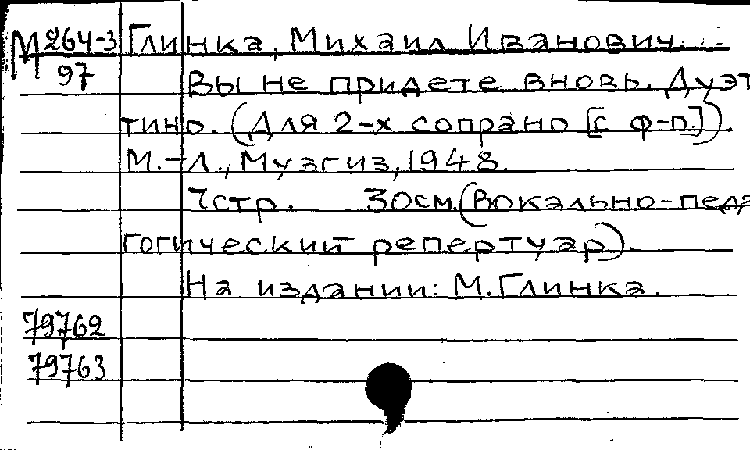 М 264-3 Глинка, Михаил Иванович.
97 Вы не придете вновь. Дуэт
тино. (Для 2-х сопрано [с ф-п.]).
М.-Л., Музгиз, 1948.
7стр. 30см (Вокально-педа
гогический репертуар).
На издании: М.Глинка.
79762
79763